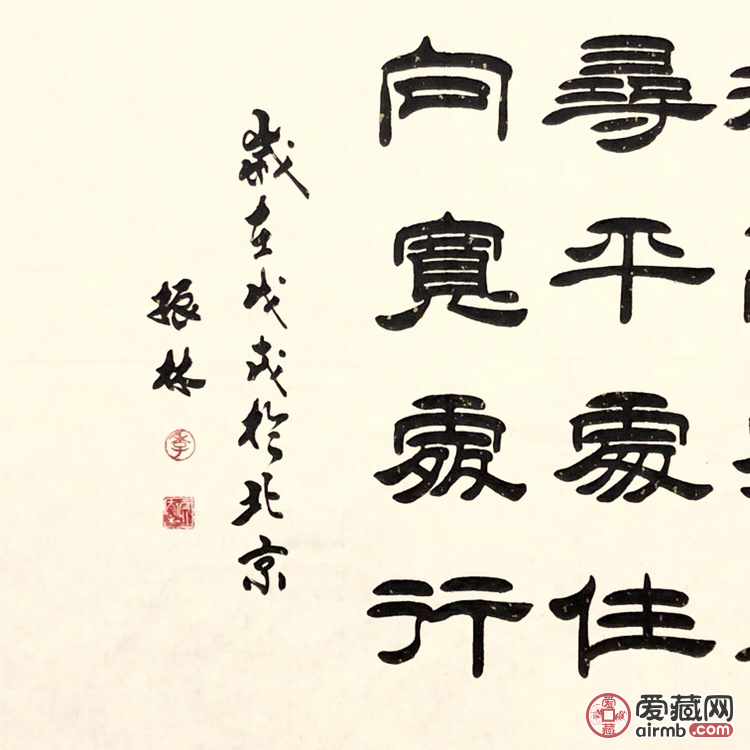 尋平處住
向寬處行
歲在戊戌於北京
振林
爱藏网
airmb.com